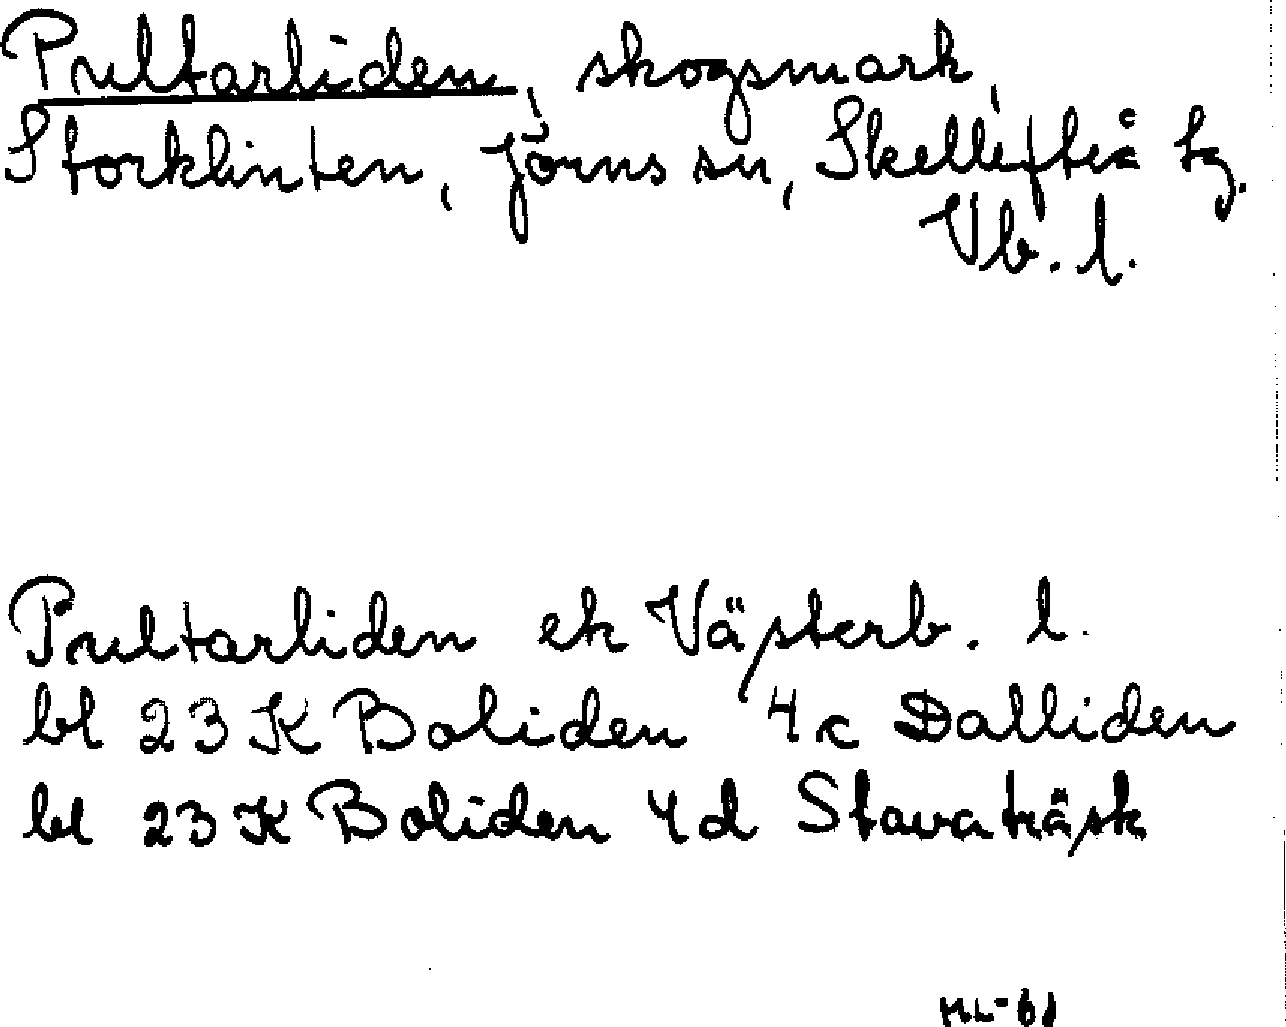 Pultarliden, skogsmark,
Storklinten, Jörns sn, Skellefteå tg.
Vb. l.
Pultarliden ek Västerb. l.
bl 23 K Boliden 4c Dalliden
bl 23 K Boliden 4d Stavaträsk